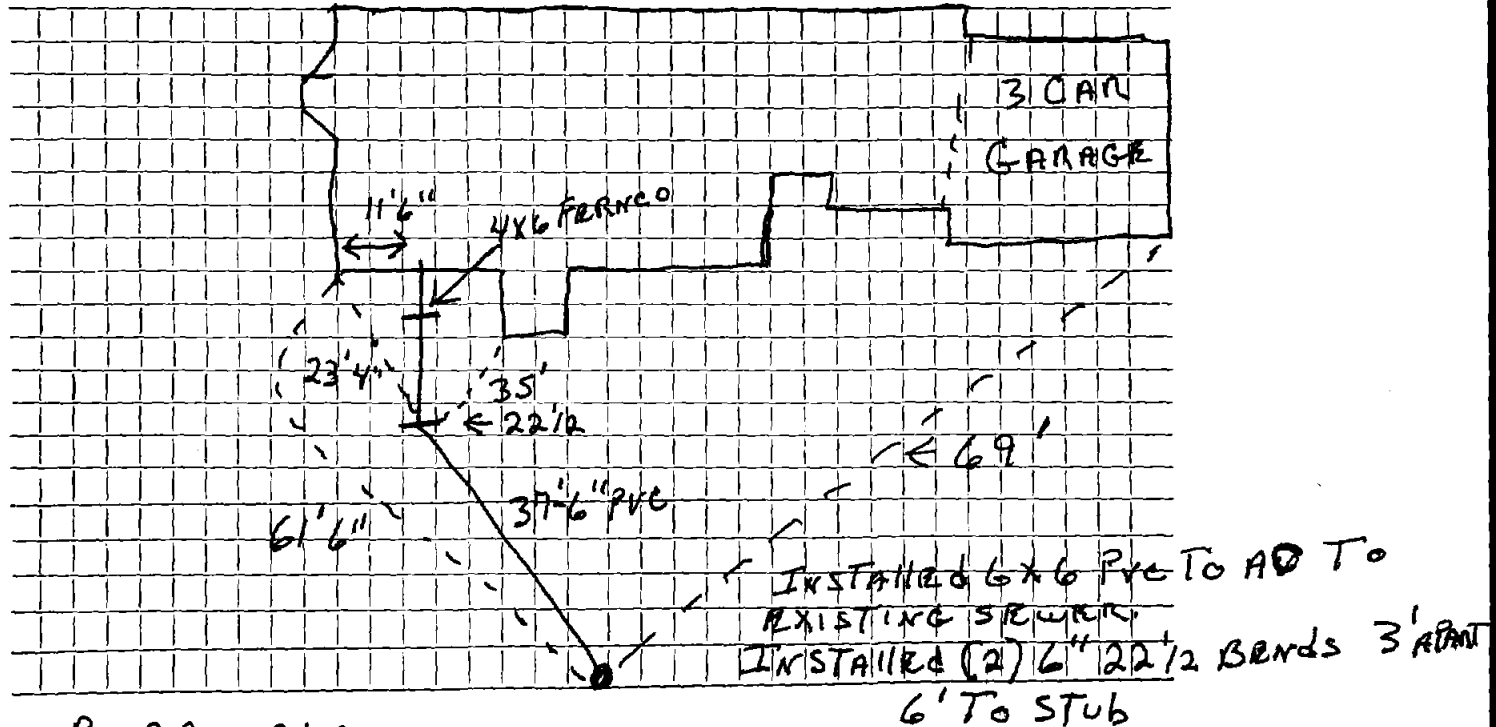 3 CAR
GARAGE
11'6"
4x6 FERNCO
23'4"
35'
← 22 1/2
← 69'
37'-6" PVC
61'6"
INSTALLED 6x6 PVC TO AD TO
EXISTING SEWER.
INSTALLED (2) 6" 22 1/2 BENDS 3' APART
6' TO STUB